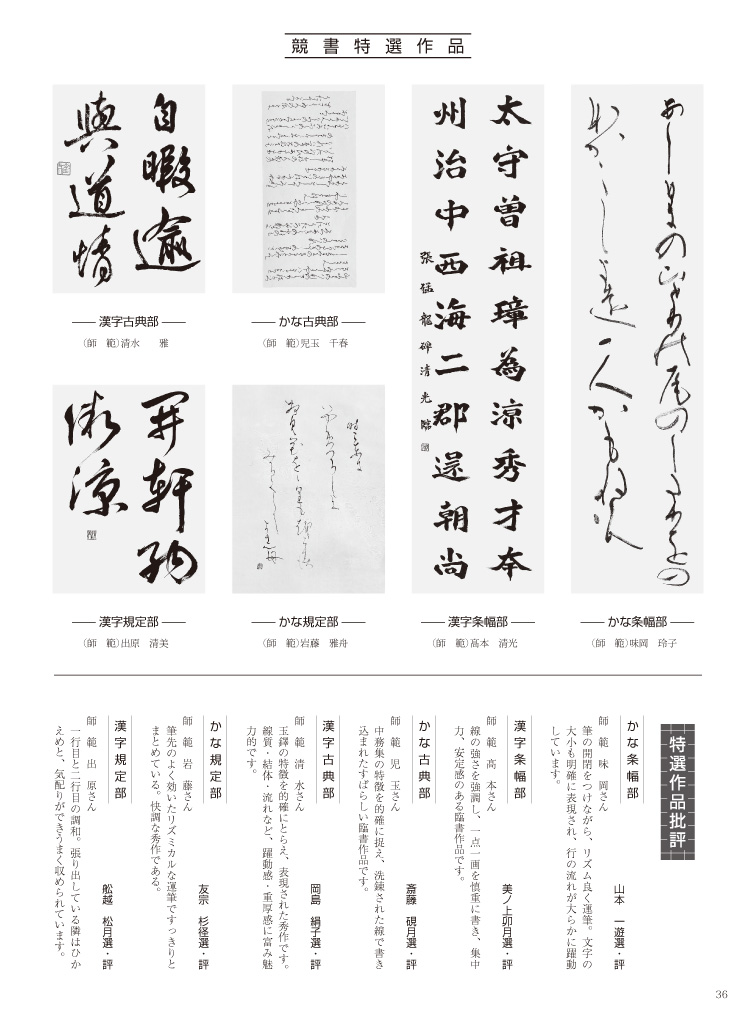 競書特選作品
自暇逾
與道情
漢字古典部
（師　範）清水　　雅
かな古典部
（師　範）児玉　千春
太守曽祖璋為涼秀才夲
州治中西海二郡還朝尚
張猛龍碑清光臨
漢字条幅部
（師　範）髙本　清光
あしひきの山とりの尾のしたり尾の
かな条幅部
（師　範）味岡　玲子
開軒納
微涼
漢字規定部
（師　範）出原　清美
かな規定部
（師　範）岩藤　雅舟
特選作品批評
かな条幅部
山本　一遊選・評
師　範　味　岡さん
筆の開閉をつけながら、リズム良く運筆。文字の
大小も明確に表現され、行の流れが大らかに躍動
しています。
漢字条幅部
美ノ上卯月選・評
師　範　髙　本さん
線の強さを強調し、一点一画を慎重に書き、集中
力、安定感のある臨書作品です。
かな古典部
斎藤　硯月選・評
師　範　児　玉さん
中務集の特徴を的確に捉え、洗練された線で書き
込まれたすばらしい臨書作品です。
漢字古典部
岡島　絹子選・評
師　範　清　水さん
玉鐸の特徴を的確にとらえ、表現された秀作です。
線質・結体・流れなど、躍動感・重厚感に富み魅
力的です。
かな規定部
友宗　杉径選・評
師　範　岩　藤さん
筆先のよく効いたリズミカルな運筆ですっきりと
まとめている。快調な秀作である。
漢字規定部
舩越　松月選・評
師　範　出　原さん
一行目と二行目の調和。張り出している隣はひか
えめと、気配りができうまく収められています。
36